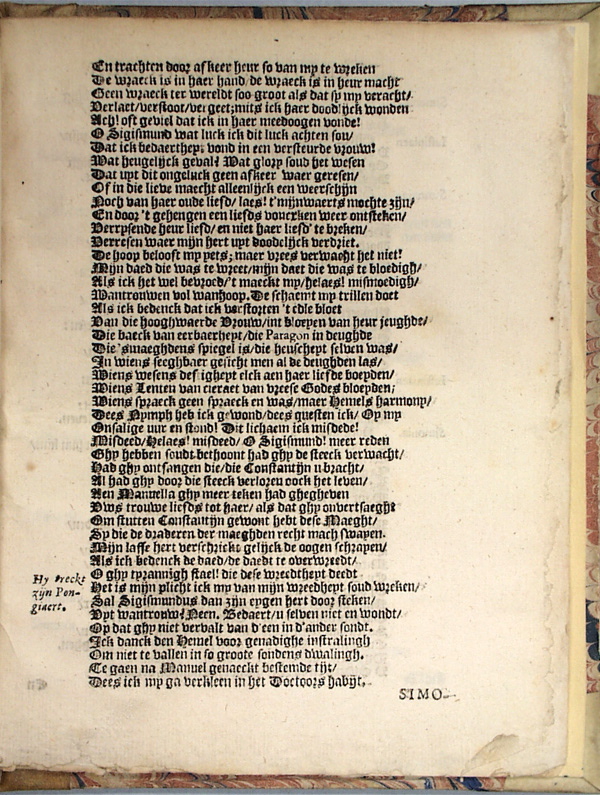 En trachten door afkeer heur so van my te wreken
De wraeck is in haer hand/ de wraeck is in heur macht
Geen wraeck ter wereldt soo groot als dat sy my veracht/
Verlaet/verstoot/vergeet; mits ick haer doodlijck wonden
Ach! oft geviel dat ick in haer meedoogen vonde!
O Sigismund wat luck ick dit luck achten sou/
Dat ick bedaertheyt vond in een versteurde vrouw!
Wat heugelijck geval? Wat glory soud het wesen
Dat uyt dit ongeluck geen afkeer waer geresen/
Of in die lieve maecht alleenlijck een weerschijn
Noch van haer oude liefd/ laes! t'mijnwaerts mochte zijn/
En door 't gehengen een liefds voncken weer ontsteken/
Verrysende heur liefd/ en niet haer liefd' te breken/
Verresen waer mijn hert uyt doodelijck verdriet.
De hoop belooft my yets; maer vrees verwacht het niet!
Mijn daed die was te wreet/mijn daet die was te bloedigh/
Als ick het wel bevroed/'t maeckt my/helaes! mismoedigh/
Wantrouwen vol wanhoop. De schaemt my trillen doet
Als ick bedenck dat ick verstorten 't edle bloet
Van die hooghwaerde Vrouw/int bloeyen van heur jeughde/
Die baeck van eerbaerheyt/die Paragon in deughde
Die 'smaeghdens spiegel is/die heuscheyt selven was/
In wiens seeghbaer gesicht men al de deughden las/
Wiens wesens deftigheyt elck aen haer liefde boeyden/
Wiens Lenten van cieraet van vreese Godes bloeyden;
Wiens spraeck geen spraeck en was/maer Hemels harmony/
Dees Nymph heb ick gewond/dees questen ick/ Op my
Onsalige uur en stond! Dit lichaem ick misdede!
Misdeed/Helaes! misdeed/ O Sigismund! meer reden
Ghy hebben soudt bethoont had ghy de steeck verwacht/
Had ghy ontfangen die/die Constantijn u bracht/
Al had ghy door die steeck verloren oock het leven/
Aen Manuella ghy meer teken had ghegheven
Uws trouwe liefds tot haer/ als dat ghy onvertsaeght
Om stutten Constantijn gewont hebt dese Maeght/
Sy die de draderen der maeghden recht mach swayen.
Mijn laffe hert verschrickt gelijck de oogen schrayen/
Als ick bedenck de daed/de daedt te overwreedt/
O ghy tyrannigh stael! die dese wreedtheyt deedt
Het is mijn plicht ick my van mijn wreedheyt soud wreken/
Hy treckt
zijn Pon-
giaert.
Sal Sigismundus dan zijn eygen hert door steken/
Uyt wantrouw? Neen. Bedaert/u selven niet en wondt/
Op dat ghy niet vervalt van d'een in d'ander sond'
Ick danck den Hemel voor genadighe instralingh
Om niet te vallen in so groote sondens dwalingh.
Te gaen na Manuel genaeckt bestemde tijt/
Dees ick my ga verkleen in het Doctoors habijt.
SIMO-